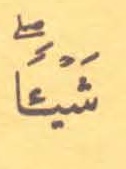 شَيْئًا ۖ